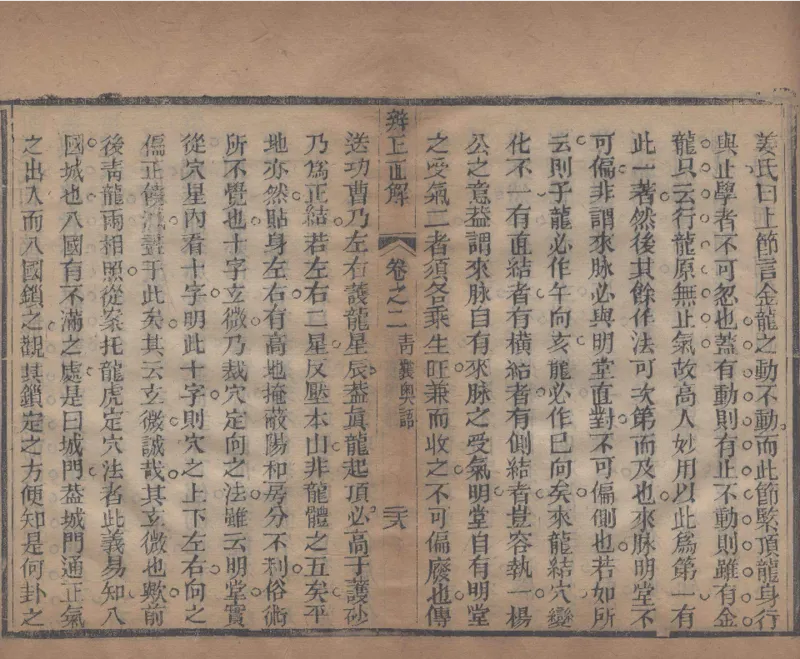 姜氏曰上節言金龍之動不動而此節緊頂龍身行
與止學者不可忽也蓋有動則有止不動則雖有金
龍只云行龍原無止氣故高人妙用以此爲第一有
此一著然後其餘作法可次第而及也來脉明堂不
可偏非謂來脉必與明堂直對不可偏側也若如所
云則子龍必作午向亥龍必作巳向矣來龍結穴變
化不一有直結者有橫結者有側結者豈容執一楊
公之意葢謂來脉自有來脉之受氣明堂自有明堂
之受氣二者須各乘生旺兼而收之不可偏廢也傳
辨正直解 卷之二 青囊奧語 二八
送功曹乃左右護龍星辰葢眞龍起頂必高于護砂
乃爲正結若左右二星反壓本山非龍體之五矣平
地亦然貼身左右有高地掩蔽陽和房分不利俗術
所不覺也十字玄微乃裁穴定向之法雖云明堂實
從穴星內看十字明此十字則穴之上下左右向之
偏正饒減盡于此矣其云玄微誠哉其玄微也歟前
後青龍兩相照從案托龍虎定穴法者此義易知八
國城也八國有不滿之處是曰城門葢城門通正氣
之出入而八國鎖之觀其鎖定之方便知是何卦之